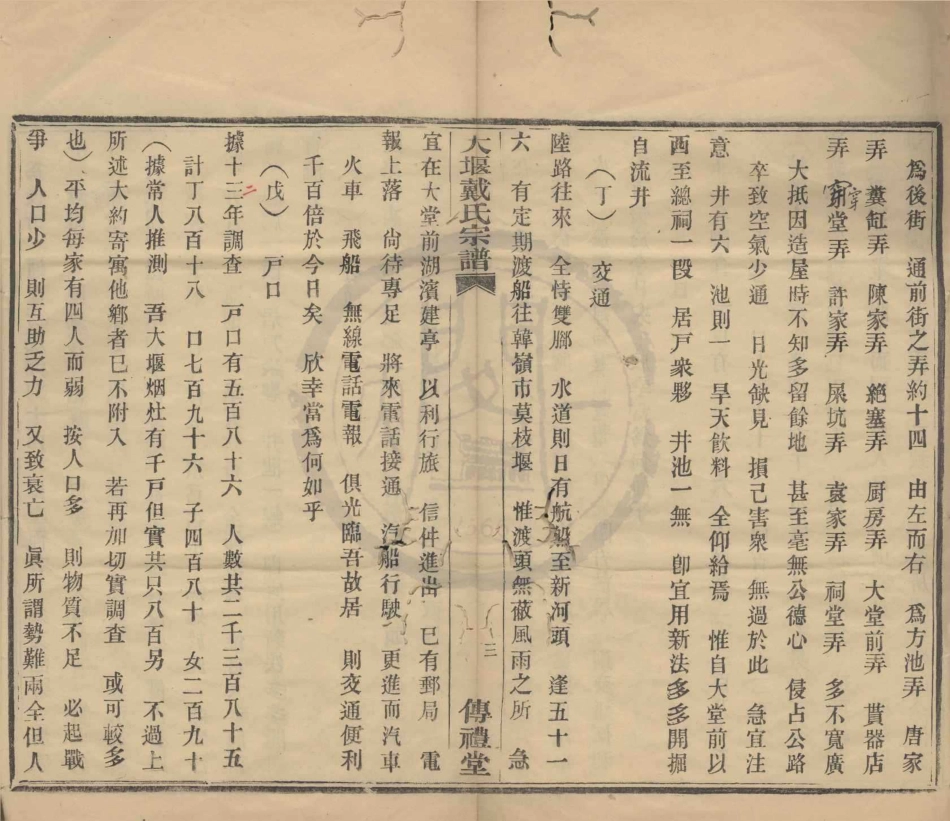 爲後街　通前街之弄約十四　由左而右　爲方池弄　唐家
弄　糞缸弄　陳家弄　絕塞弄　厨房弄　大堂前弄　貰器店
弄　宰牛弄　許家弄　屎坑弄　袁家弄　祠堂弄　多不寬廣
大抵因造屋時不知多留餘地　甚至毫無公德心　侵占公路
卒致空氣少通　日光缺見　損己害衆　無過於此　急宜注
意　井有六　池則一　旱天飲料　全仰給焉　惟自大堂前以
西至總祠一段　居戶衆夥　井池一無　卽宜用新法多多開掘
自流井
（丁）　交通
陸路往來　全恃雙腳　水道則日有航船至新河頭　逢五十一
六　有定期渡船往韓嶺市莫枝堰　惟渡頭無蔽風雨之所　急
大堰戴氏宗譜　三　傳禮堂
宜在大堂前湖濱建亭　以利行旅　信件進出　已有郵局　電
報上落　尙待專足　將來電話接通　汽船行駛　更進而汽車
火車　飛船　無線電話電報　俱光臨吾故居　則交通便利
千百倍於今日矣　欣幸當爲何如乎
（戊）　戶口
據十三年調查　戶口有五百八十六　人數共二千三百八十五
計丁八百十八　口七百九十六　子四百八十　女二百九十
二
（據常人推測　吾大堰烟灶有千戶但實共只八百另　不過上
所述大約寄寓他鄉者已不附入　若再加切實調查　或可較多
也）平均每家有四人而弱　按人口多　則物質不足　必起戰
爭　人口少　則互助乏力　又致衰亡　眞所謂勢難兩全但人